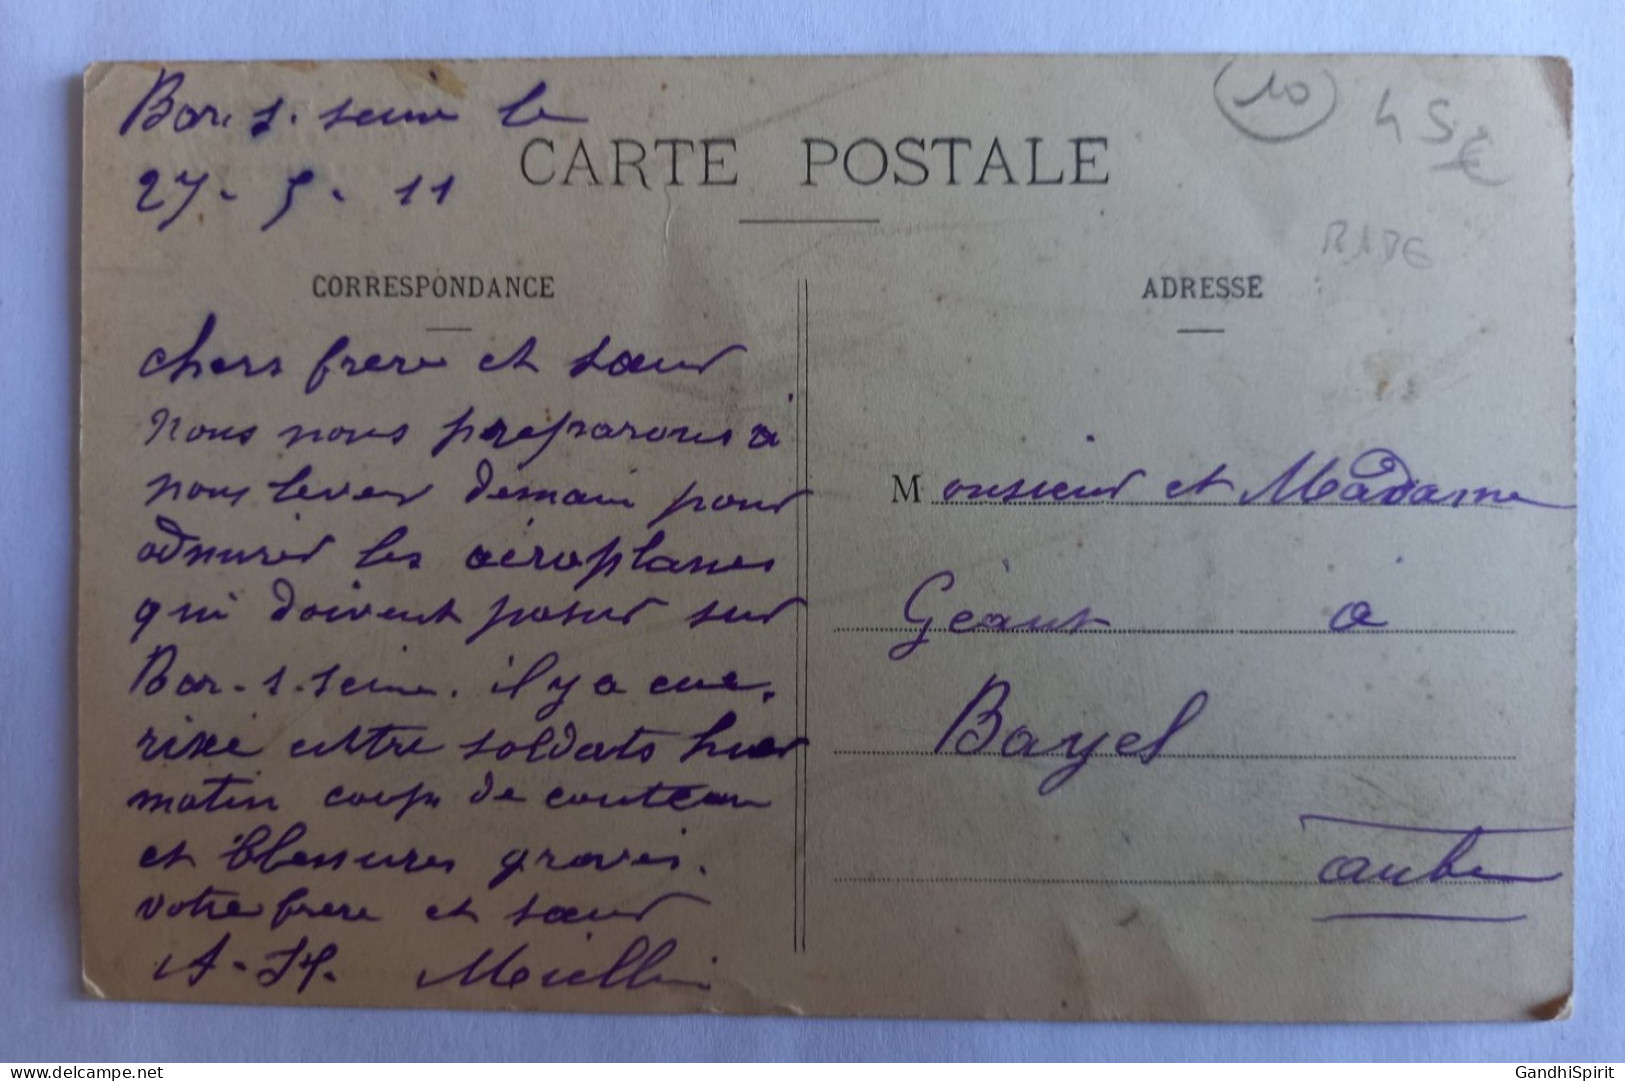 Bar. s. seine le
27 - 5 - 11
10
45€
CARTE POSTALE
CORRESPONDANCE
ADRESSE
chers frere et sœur
nous nous preparons à
nous lever demain pour
admirer les aéroplanes
qui doivent passer sur
Bar-s-seine. il y a eue,
rixe entre soldats hier
matin coups de couteau
et blessures graves.
votre frere et sœur
A-H.
Monsieur et Madame
Géant à
Bayel
aube
GandhiSpirit
delcampe.net